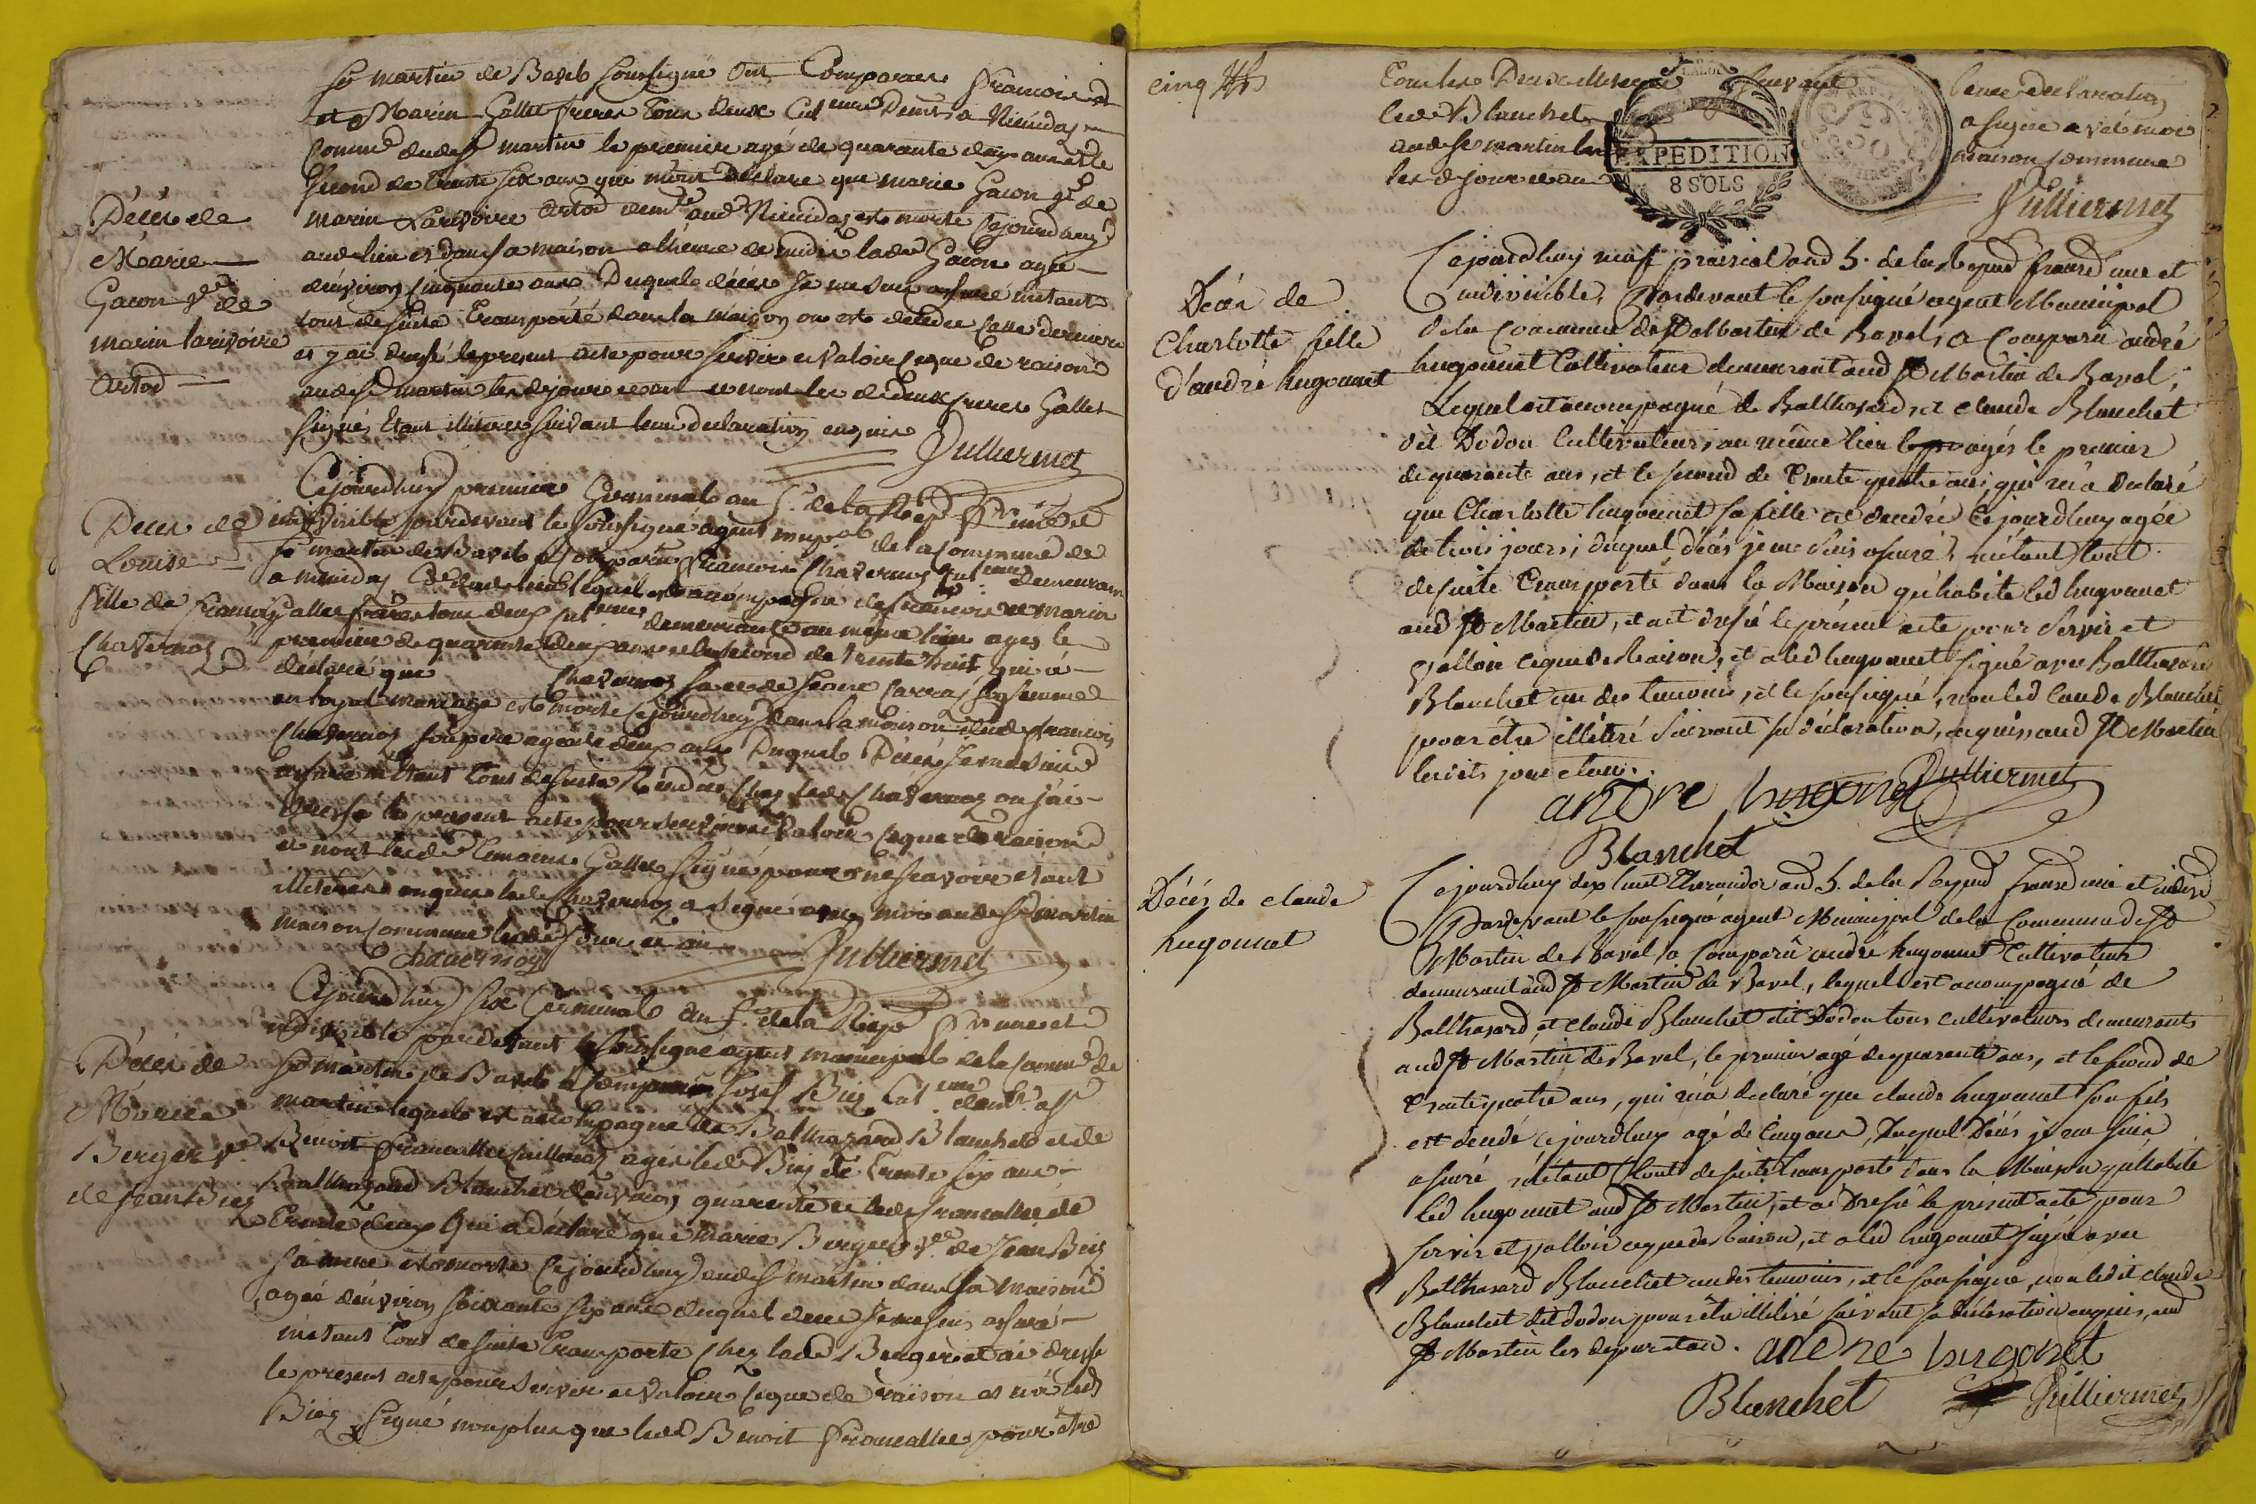 St martin de Bavel soussigné ont Comparu francois
et Marin Gallet freres tous deux Cult demts a Niuidas
Comme dudt St martin le premier agé de quarante deux ans et le
second de trente six ans qui m'ont déclaré que marie Gacon
marin Larivoire Artod
aud lieu et dans sa maison a l'heure de midi lade Gacon agée
d'environ cinquante ans Duquel décès Je me suis assuré m'etant
tout de suite transporté dans la maison ou est decedée cette derniere
et y ai dressé le present acte pour servir et valoir ce que de raison
aud St martin les d jour et an et n'ont les dts deux freres Gallet
signés Etant illiteres suivant leur declaration enquis
Julliermet
Décès de
Marie
Gacon
marin larivoire
Artod
Cejourdhuy premier Germinal an 5e de la Rep
indivisible pardevant le soussigné agent mupal de la commune de
St martin de Bavel a comparu francois Chavernoz
lequel est accompagné de francois et marin
Gallet freres tous deux demeurants au même lieu agés le
premier de quarante deux ans et le second de trente huit qui a
déclaré que Chavernoz
en loyal mariage est morte cejourdhuy dans la maison dud francois
Chavernoz son pere agée de deux ans Duquel Décès Je me suis
assuré m'etant tout de suite Rendu chez led Chavernoz ou j'ai
dressé le present acte pour servir et valoir ce que de raison
et n'ont les d temoins Gallet signé pour ne scavoir etant
illiteres enquis et led Chavernoz a signé avec moi aud St martin
maison commune les d jour et an
chavernoz
Julliermet
Décès de
Louise
fille de francois
Chavernoz
Cejourdhuy six Germinal an 5e de la Rep
indivisible pardevant le soussigné agent municipal de la comme de
St martin de Bavel a comparu Josef Biez
martin lequel est accompagné de Balthazard Blanchet et de
Benoit francallet agés led Biez de trente six ans
Balthazard Blanchet d'environ quarante et led francallet de
trente deux qui a déclaré que marie Berger ve de Jean Biez
sa mere est morte cejourdhuy aud St martin dans sa maison
agée d'environ soixante six ans duquel deces Je me suis assuré
m'etant tout de suite transporté chez lade Berger et ai dressé
le present acte pour servir et valoir ce que de raison et n'a led
Biez signé non plus que led Benoit francallet pour être
Décès de
Marie
Berger ve
de Jean Biez
cinq
suivant leur declaration
led Blanchet a signé avec moi
aud St martin maison commune
les d jour et an
EXPEDITION
8 SOLS
Julliermet
Cejourdhuy neuf prairial an 5. de la Repub francse une et
indivisible, Pardevant le soussigné agent Municipal
de la Commune de St Martin de Bavel, a Comparu andré
hugonnet Cultivateur demeurant aud St Martin de Bavel,
Lequel est accompagné de Balthasard, et claude Blanchet
dit Dodon Cultivateurs, au même lieu agés le premier
de quarante ans, et le second de trente quatre ans, qui m'a declaré
que Charlotte hugonnet sa fille est decedée Cejourdhuy agée
de trois jours; duquel décès je me suis assuré, m'étant tout
de suite transporté dans la Maison qu'habite led hugonnet
aud St Martin, et ait dressé le présent acte pour servir et
valloir ceque de Raison, et a led hugonnet signé avec Balthasard
Blanchet un des temoins, et le soussigné, non led Claude Blanchet
pour être illétéré suivant sa déclaration, enquis, aud St Martin
lesdits jour et an.
andre hugonet Julliermet
Blanchet
Décès de
Charlotte fille
d'andré hugonnet
Cejourdhuy dix huit thermidor an 5. de la Repub francse une et indivise
Pardevant le soussigné agent Municipal de la Commune de St
Martin de Bavel, a Comparu andré hugonnet Cultivateur
demeurant aud St Martin de Bavel, lequel est acompagné de
Balthasard, et claude Blanchet dit Dodon tous cultivateurs demeurants
aud St Martin de Bavel, le premier agé de quarante ans, et le second de
trente quatre ans, qui m'a declaré que claude hugonnet son fils
est décédé cejourdhuy agé de Cinq ans, Duquel Décès je me suis
assuré m'étant tout de suite transporté dans la Maison qu'habite
led hugonnet aud St Martin, et ai Dressé le présent acte pour
servir et valloir ceque de Raison, et a led hugonnet signé avec
Balthasard Blanchet un des temoins, et le soussigné, non ledit claude
Blanchet dit dodon pour être illiteré suivant sa declaration enquis, aud
St Martin les d jour et an. andre hugonet
Blanchet Julliermet
Décès de claude
hugonnet